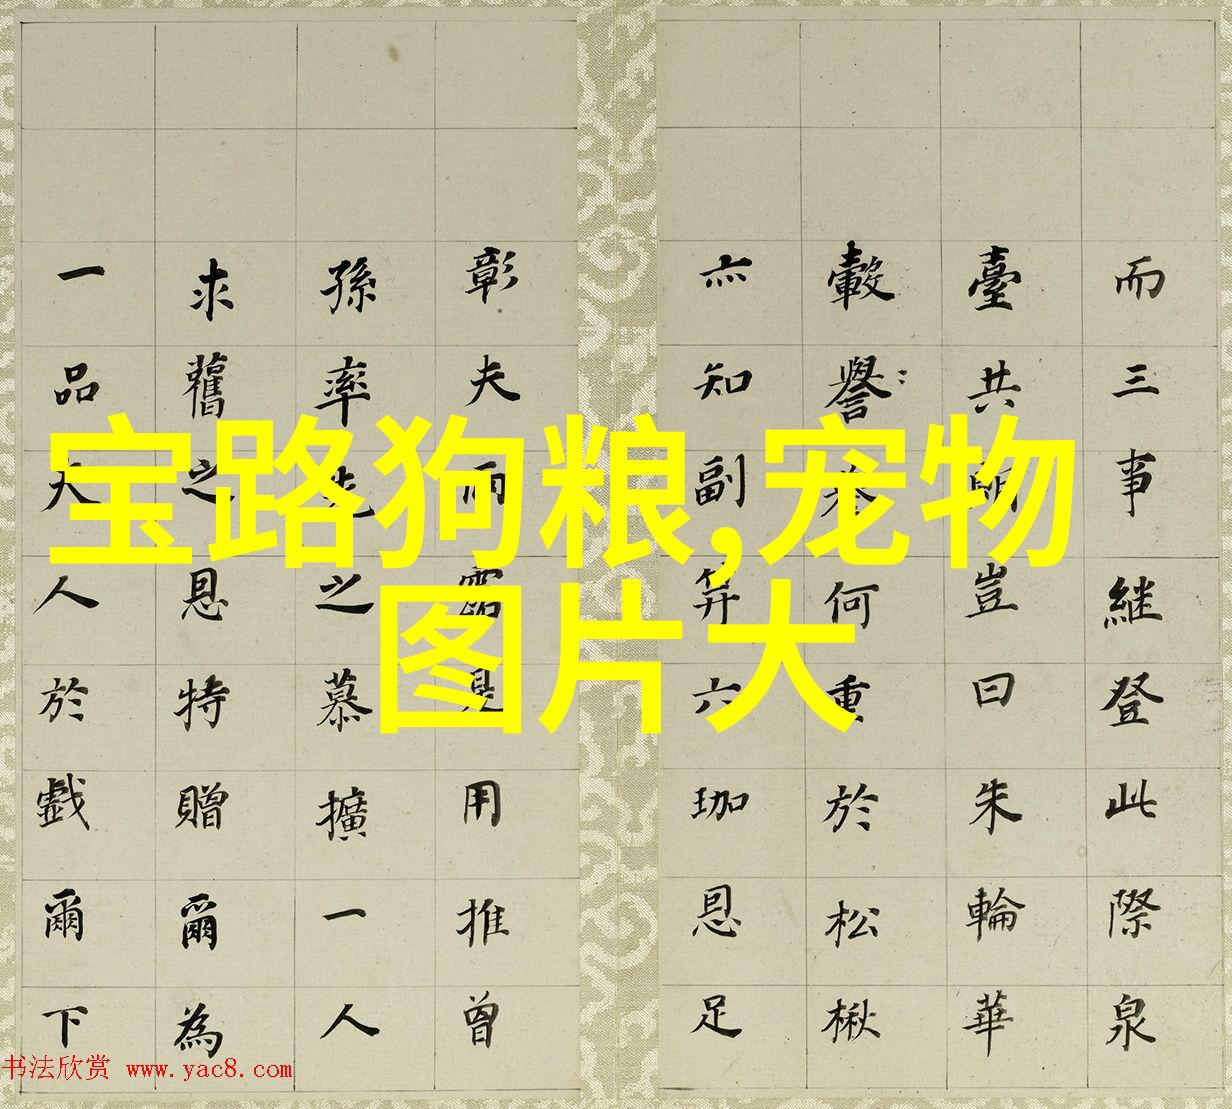 宝路狗粮,宠物
图片大
而三事继登此際泉
臺共豈曰朱輪華
轂譽何重於松楸
亦知副笄六珈恩足
彰夫雨露是用推曾
孫率先之慕擴一人
求舊之恩特贈爾為
一品夫人於戲爾下
书法欣赏 www.yac8.com